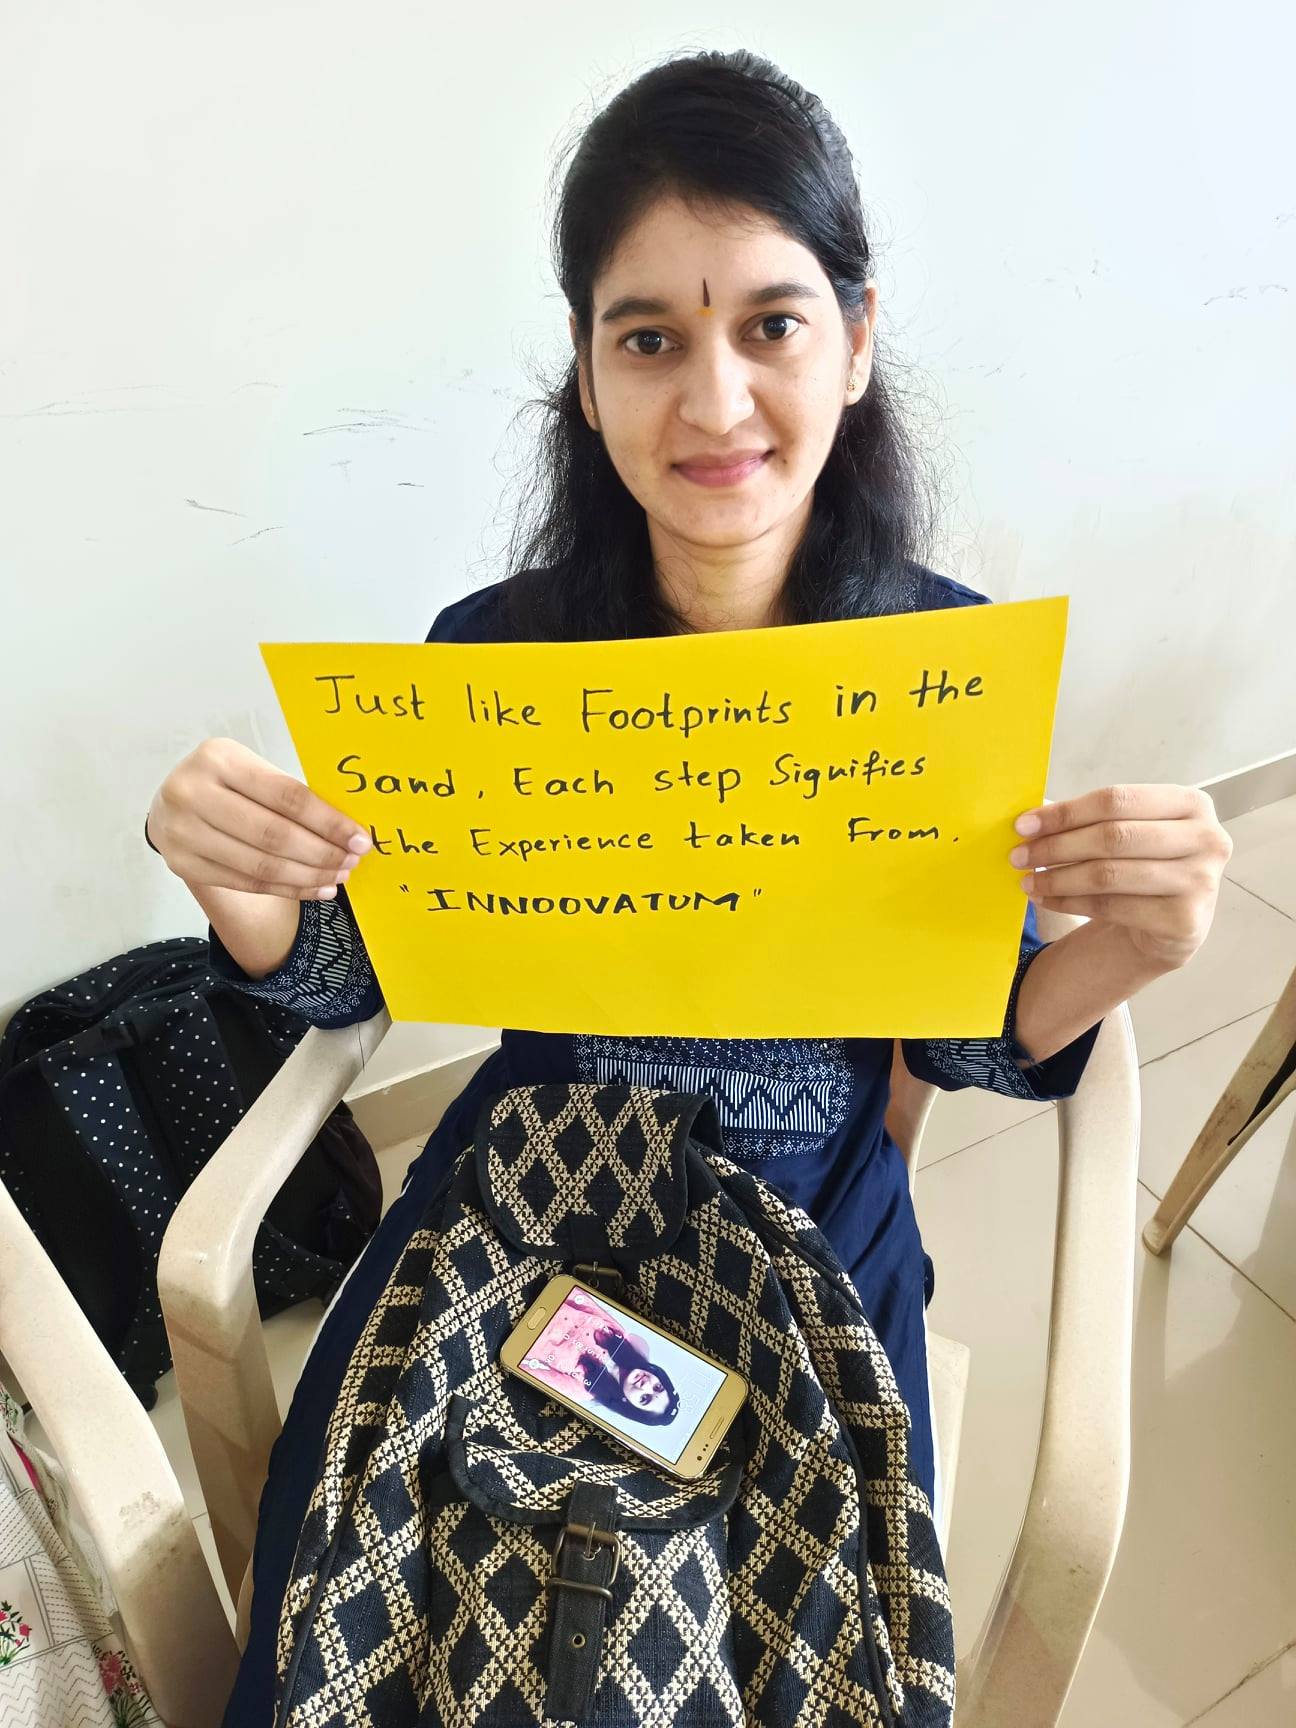 Just like Footprints in the
Sand, Each step Signifies
the Experience taken From.
"INNOOVATUM"